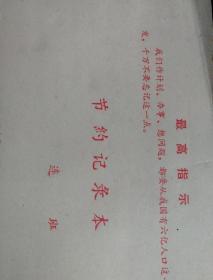 最高指示
我们作计划、办事、想问题，都要从我国有六亿人口这
发，千万不要忘记这一点。
节约记录本
连 班